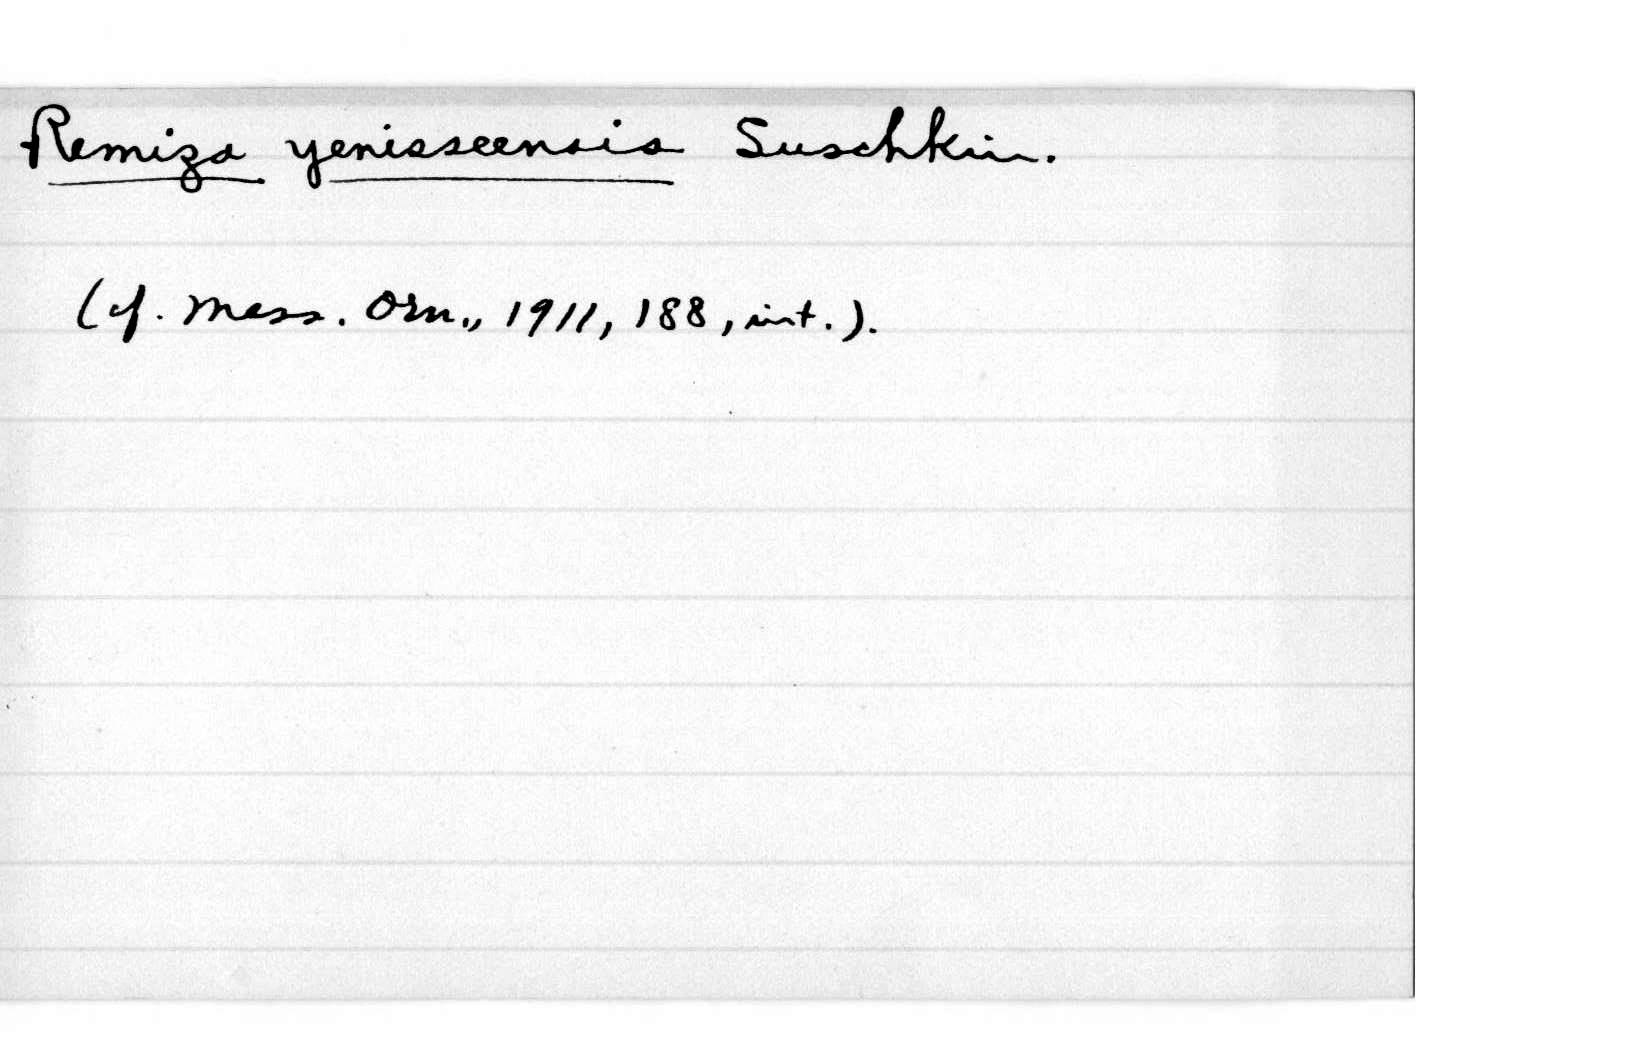 Remiza yenisseensis Suschkin.
(cf. Mess. Orn., 1911, 188, int.).